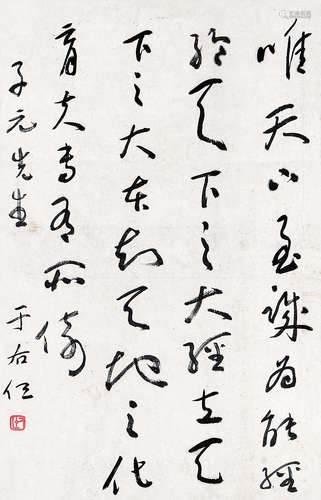 唯天下至誠為能經
綸天下之大經立天
下之大本知天地之化
育夫焉有所倚
子元先生
于右任